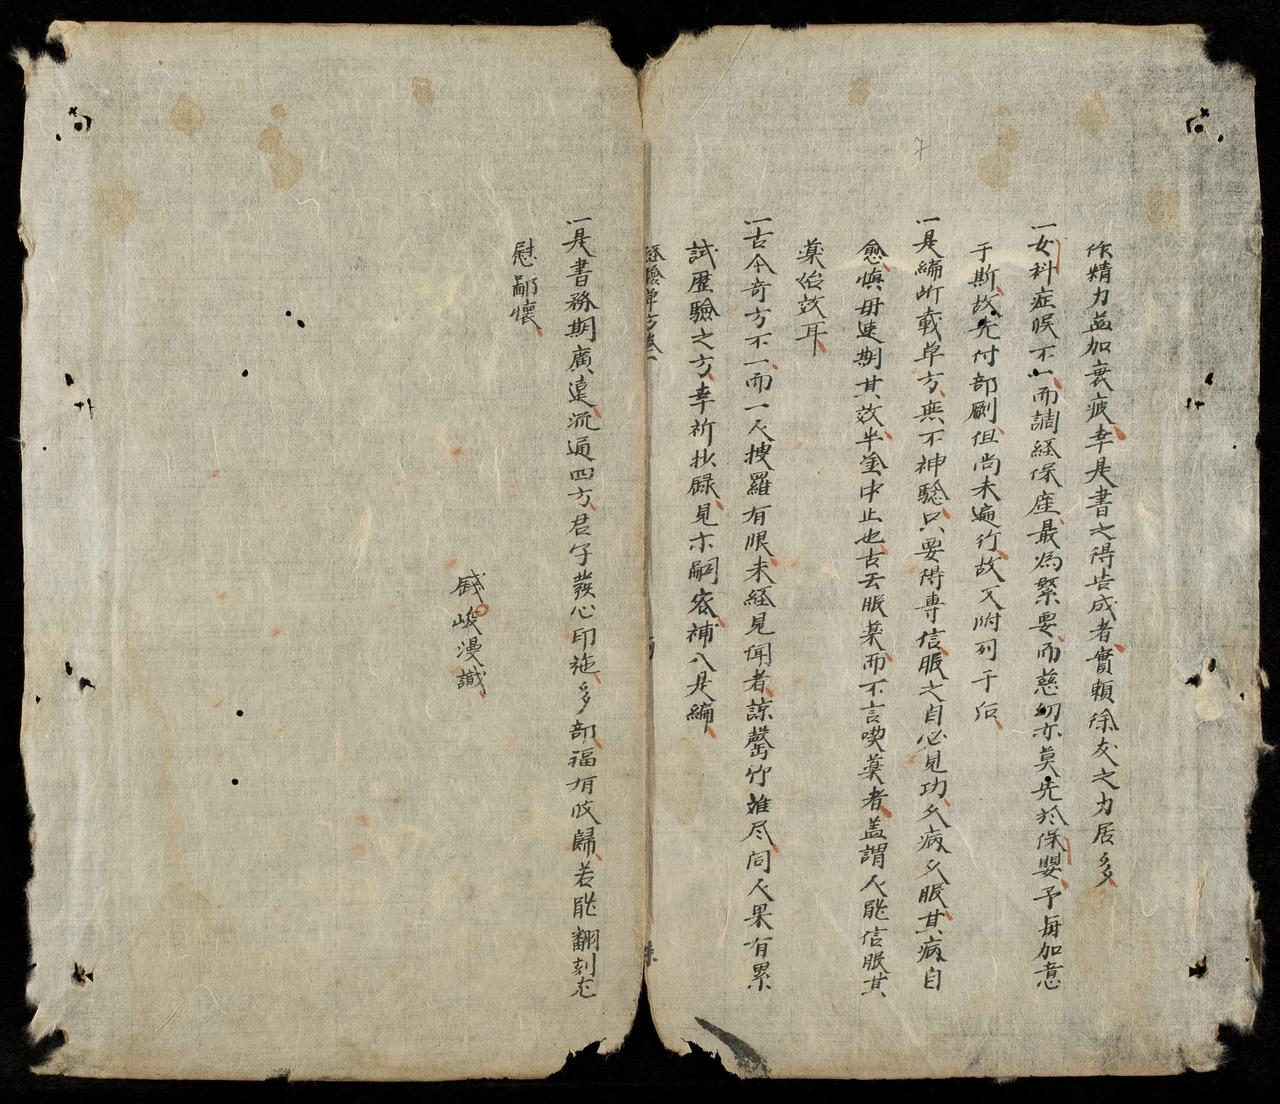 作精力益加衰疲幸是書之得告成者實頼徐友之力居多
一女科症候不一而調経保産最為緊要而慈幼亦莫先於保嬰予每加意
于斯故先付部劂但尚未遍行故又附列于后
一是編所載草方無不神驗只要得專信服之自必見功久病久服其病自
愈慎毋速期其效半途中止也古云服薬而不言喫薬者盖謂人能信服其
薬始效耳
一古今奇方不一而一人搜羅有限未経見聞者諒罄竹难尽同人果有累
試歷驗之方幸祈抄錄見示嗣容補入是編
経驗单方卷一
一是書務期廣遠流通四方君子發心印施多部福有攸歸若能翻刻尤
慰鄙懷
峻漫識
7